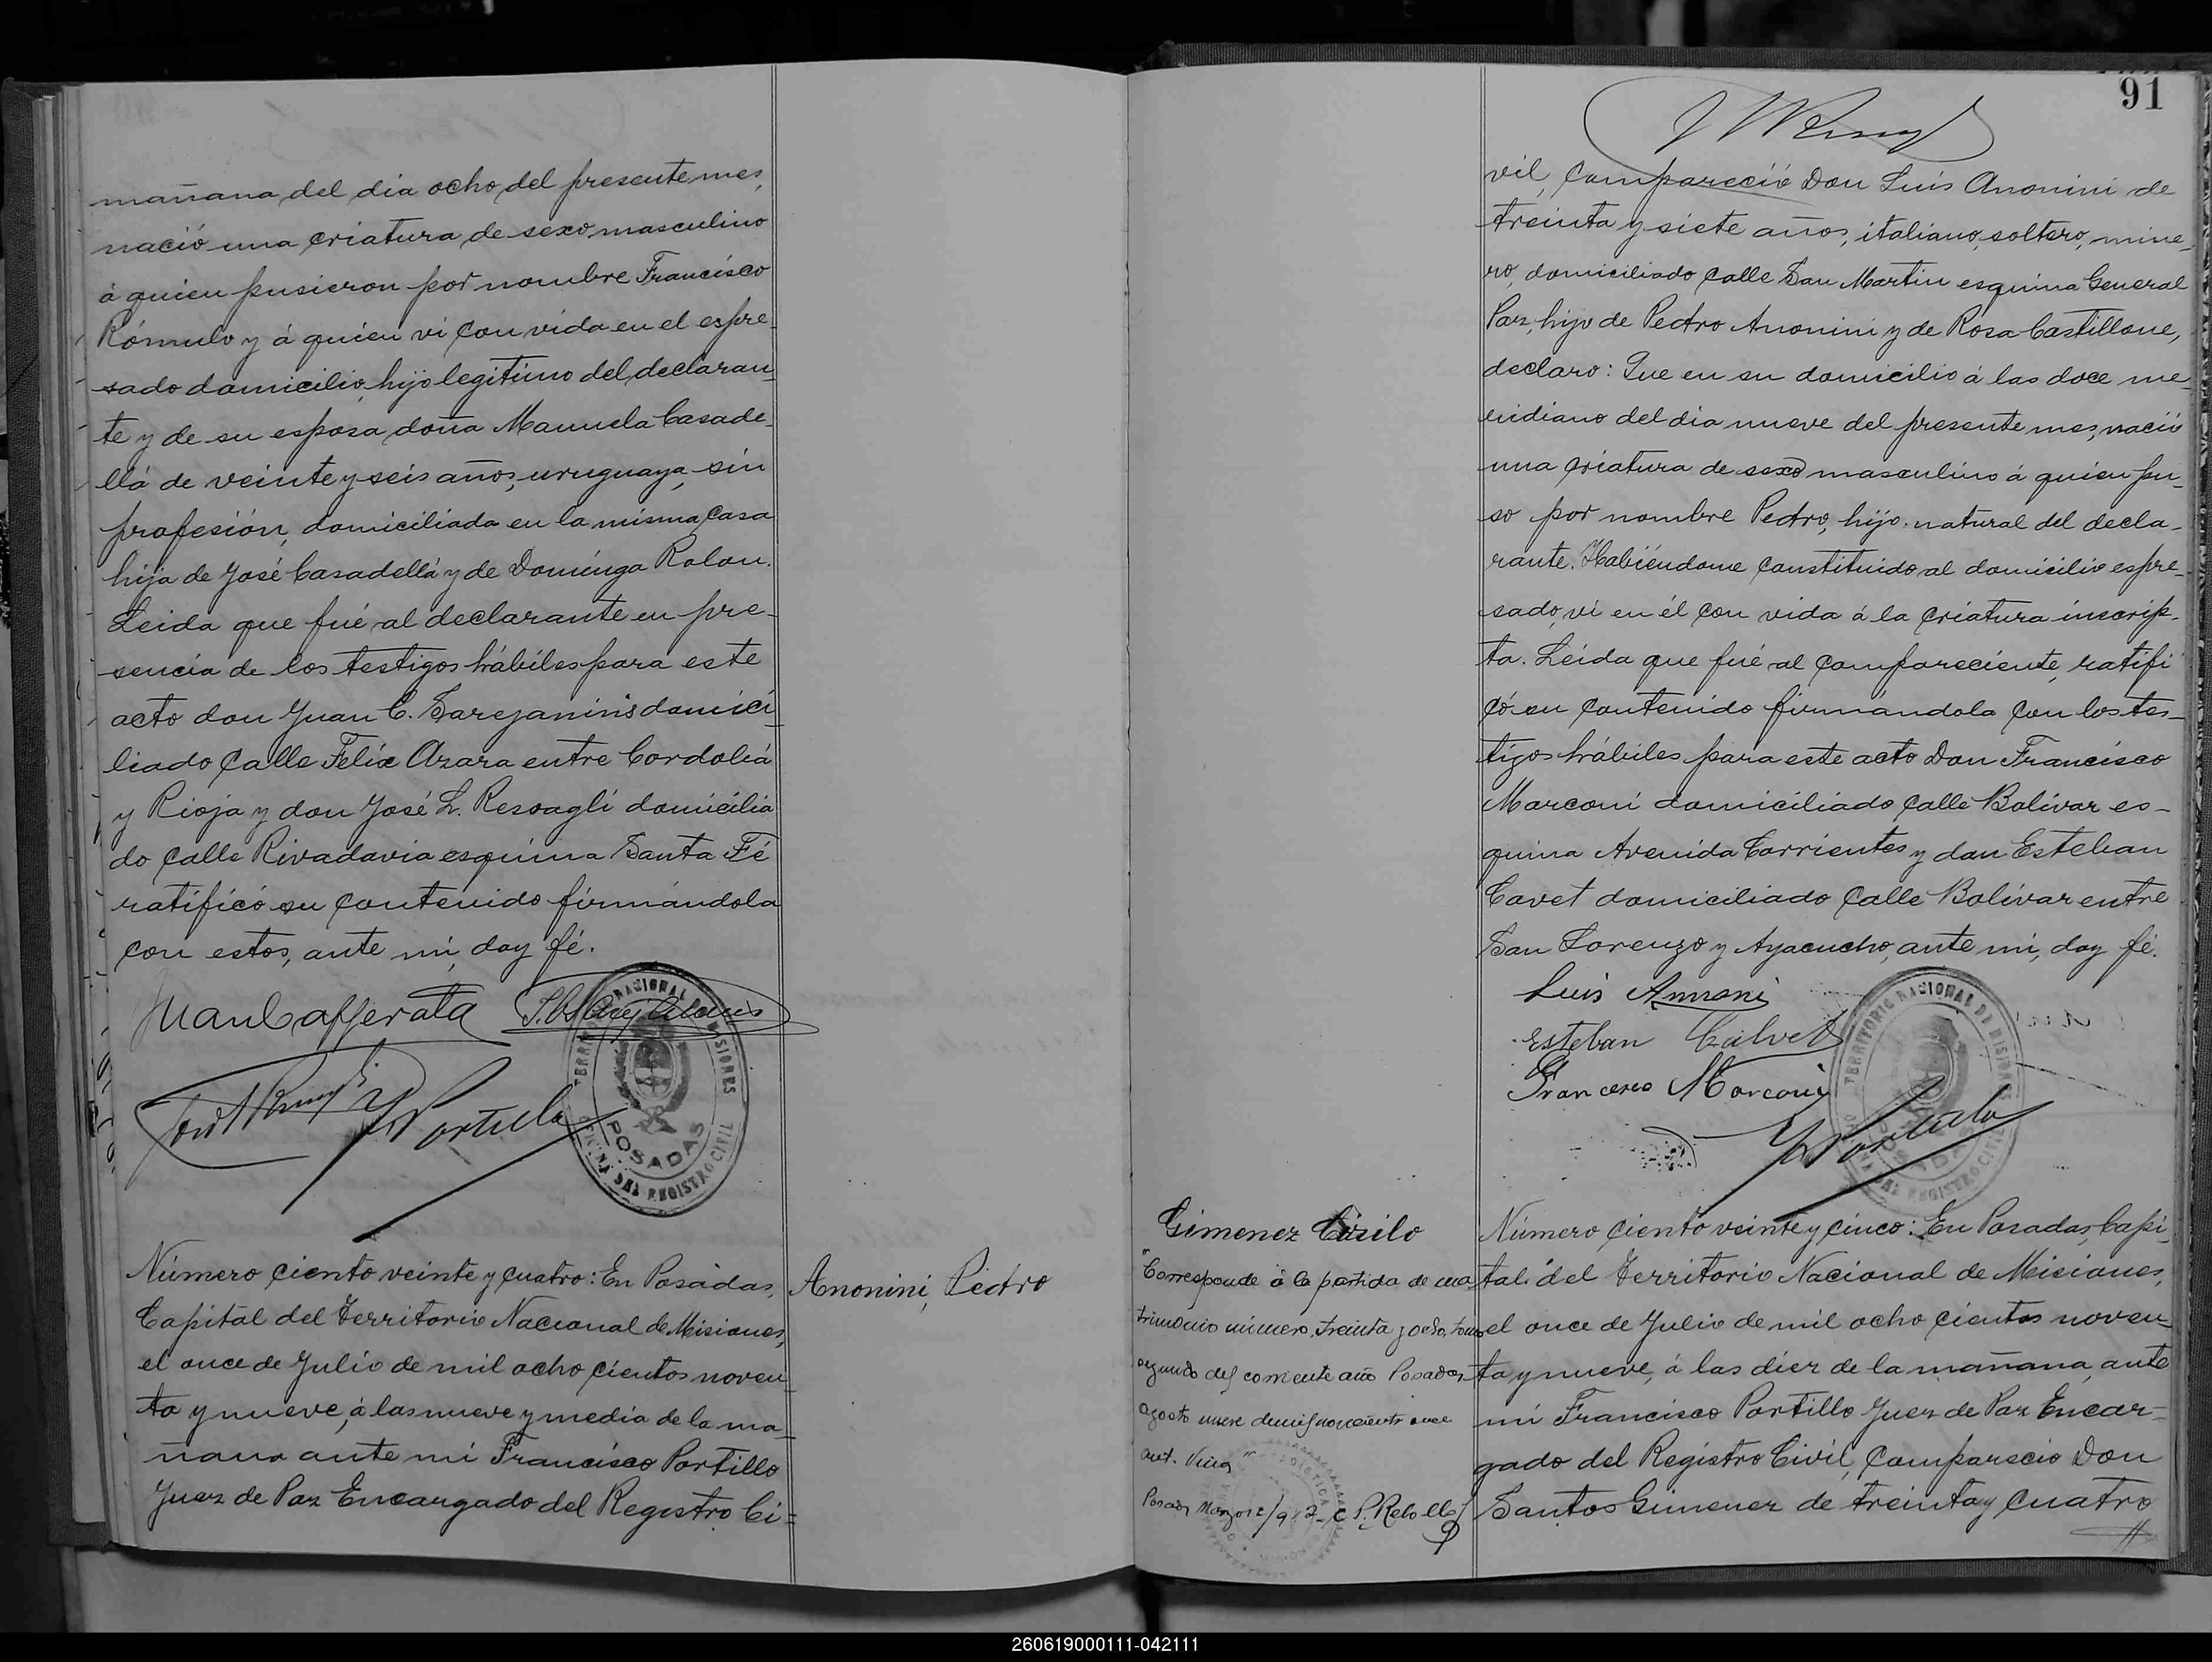 mañana del dia ocho del presente mes,
nació una criatura de sexo masculino
á quien pusieron por nombre Francisco
Rómulo y á quien vi con vida en el espre-
sado domicilio, hijo legítimo del declaran-
te y de su esposa doña Manuela Casade-
llá de veinte y seis años, uruguaya, sin
profesión, domiciliada en la misma casa
hija de José Casadellá y de Dominga Rolon.
Leida que fué al declarante en pre-
sencia de los testigos hábiles para este
acto don Juan C. domici-
liado calle Felix Azara entre Cordobá
y Rioja y don José L. Resoagli domicilia
do calle Rivadavia esquina Santa Fé
ratificó su contenido firmándola
con estos, ante mi, doy fé.
Juan Cafferata
F. Portillo
TERRITORIO NACIONAL DE MISIONES
POSADAS
OFICINA DEL REGISTRO CIVIL
Número ciento veinte y cuatro: En Posadas,
Capital del Territorio Nacional de Misiones,
el once de Julio de mil ocho cientos noven-
ta y nueve, á las nueve y media de la ma-
ñana ante mi Francisco Portillo
Juez de Paz Encargado del Registro Ci-
Anonini, Pedro
91
vil, compareció Don Luis Anonini de
treinta y siete años, italiano, soltero, mine-
ro, domiciliado calle San Martin esquina General
Paz, hijo de Pedro Anonini y de Rosa Castillone,
declaro: Que en su domicilio á las doce me-
ridiano del dia nueve del presente mes, nació
una criatura de sexo masculino á quien pu-
so por nombre Pedro, hijo natural del decla-
rante. Habiéndome constituido al domicilio espre-
sado, vi en él con vida á la criatura inscrip-
ta. Leida que fué al compareciente, ratifi
có su contenido firmándola con los tes-
tigos hábiles para este acto Don Francisco
Marconi domiciliado calle Bolivar es-
quina Avenida Corrientes y don Esteban
Cavet domiciliado calle Bolívar entre
San Lorenzo y Ayacucho, ante mi, doy fé.
Luis Annoni
Esteban Calvet
Francesco Marconi
F. Portillo
TERRITORIO NACIONAL DE MISIONES
POSADAS
OFICINA DEL REGISTRO CIVIL
Gimenez Cirilo
"Corresponde á la partida de ma
trimonio número treinta y ocho, tomo
segundo del corriente año Posadas
agosto nueve de mil novecientos once
Posadas Marzo 12/912 C P. Rebollo
Número ciento veinte y cinco: En Posadas, Capi-
tal del Territorio Nacional de Misiones,
el once de Julio de mil ocho cientos noven-
ta y nueve, á las diez de la mañana, ante
mi Francisco Portillo Juez de Paz Encar-
gado del Registro Civil, compareció Don
Santos Gimenez de treinta y cuatro
260619000111-042111